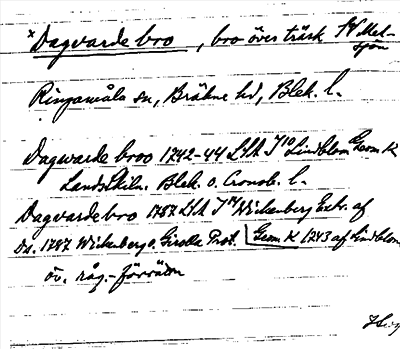 ×Dagvarde bro, bro över träsk
Ringamåla sn, Bräkne hd, Blek. l.
Dagwarde broo 1742-44 LSA Lindblom Geom K
Landtskiln. Blek. o. Cronob. l.
Dagvarde bro 1787 LSA Wickenberg Extr. af
Do. 1787 Wickenberg o. Gisella Prot. Geom K 1743 af Lindblom
öv. råg.-förrätn